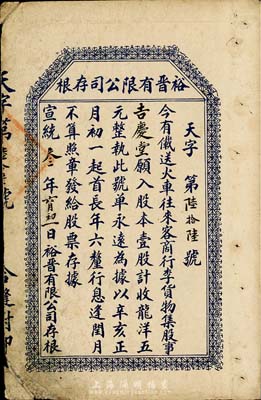 裕晋有限公司存根
天字 第陸拾陸號
今有儎送火車往來客商行李貨物集股事
吉慶堂願入股本壹股計收龍洋五
元整執此號单永遠為據以辛亥正
月初一起首長年六釐行息逢閏月
不算照章發給股票存據
宣統叁年肓初一日裕晋有限公司存根
天字第